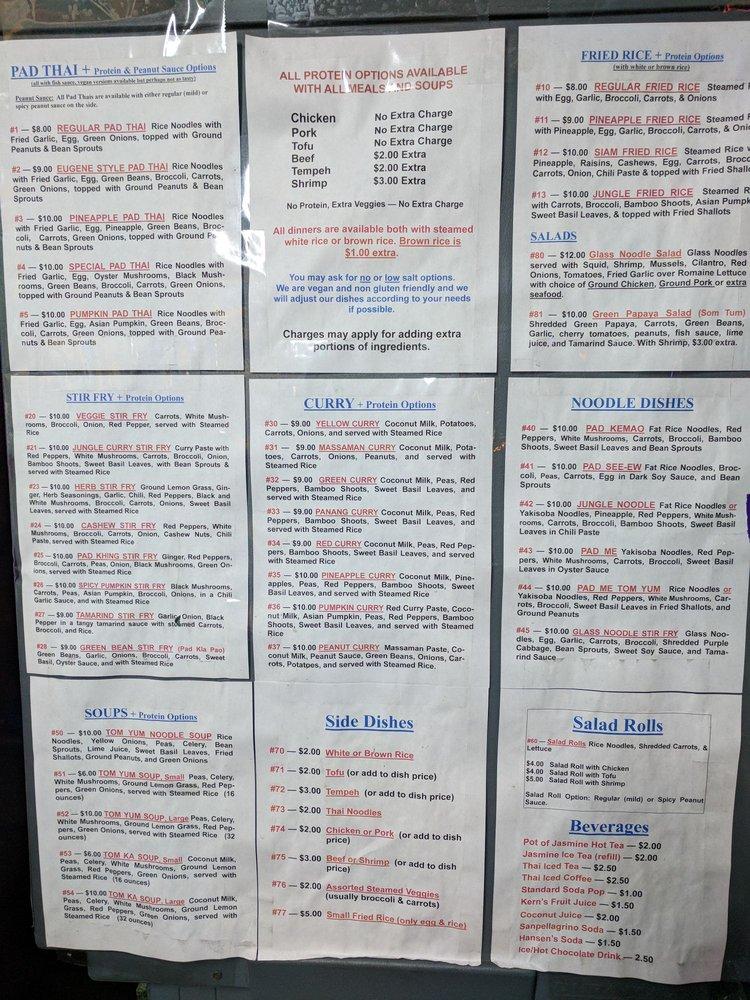 PAD THAI + Protein & Peanut Sauce Options
(all with fish sauce, vegan versions available but perhaps not as tasty)
Peanut Sauce: All Pad Thais are available with either regular (mild) or
spicy peanut sauce on the side.
#1 — $8.00 REGULAR PAD THAI Rice Noodles with
Fried Garlic, Egg, Green Onions, topped with Ground
Peanuts & Bean Sprouts
#2 — $9.00 EUGENE STYLE PAD THAI Rice Noodles
with Fried Garlic, Egg, Green Beans, Broccoli, Carrots,
Green Onions, topped with Ground Peanuts & Bean
Sprouts
#3 — $10.00 PINEAPPLE PAD THAI Rice Noodles
with Fried Garlic, Egg, Pineapple, Green Beans, Broc-
coli, Carrots, Green Onions, topped with Ground Pe
nuts & Bean Sprouts
#4 — $10.00 SPECIAL PAD THAI Rice Noodles with
Fried Garlic, Egg, Oyster Mushrooms, Black Mush-
rooms, Green Beans, Broccoli, Carrots, Green Onions,
topped with Ground Peanuts & Bean Sprouts
#5 — $10.00 PUMPKIN PAD THAI Rice Noodles with
Fried Garlic, Egg, Asian Pumpkin, Green Beans, Broc-
coli, Carrots, Green Onions, topped with Ground Pea-
nuts & Bean Sprouts
ALL PROTEIN OPTIONS AVAILABLE
WITH ALL MEALS AND SOUPS
Chicken No Extra Charge
Pork No Extra Charge
Tofu No Extra Charge
Beef $2.00 Extra
Tempeh $2.00 Extra
Shrimp $3.00 Extra
No Protein, Extra Veggies — No Extra Charge
All dinners are available both with steamed
white rice or brown rice. Brown rice is
$1.00 extra.
You may ask for no or low salt options.
We are vegan and non gluten friendly and we
will adjust our dishes according to your needs
if possible.
Charges may apply for adding extra
portions of ingredients.
FRIED RICE + Protein Options
(with white or brown rice)
#10 — $8.00 REGULAR FRIED RICE Steamed
with Egg, Garlic, Broccoli, Carrots, & Onions
#11 — $9.00 PINEAPPLE FRIED RICE Steamed
with Pineapple, Egg, Garlic, Broccoli, Carrots, & Oni
#12 — $10.00 SIAM FRIED RICE Steamed Rice
Pineapple, Raisins, Cashews, Egg, Carrots, Brocc
Carrots, Onion, Chili Paste & topped with Fried Shall
#13 — $10.00 JUNGLE FRIED RICE Steamed R
with Carrots, Broccoli, Bamboo Shoots, Asian Pumpk
Sweet Basil Leaves, & topped with Fried Shallots
SALADS
#80 — $12.00 Glass Noodle Salad Glass Noodles
served with Squid, Shrimp, Mussels, Cilantro, Red
Onions, Tomatoes, Fried Garlic over Romaine Lettuce
with choice of Ground Chicken, Ground Pork or extra
seafood.
#81 — $10.00 Green Papaya Salad (Som Tum)
Shredded Green Papaya, Carrots, Green Beans,
Garlic, cherry tomatoes, peanuts, fish sauce, lime
juice, and Tamarind Sauce. With Shrimp, $3.00 extra.
STIR FRY + Protein Options
#20 — $10.00 VEGGIE STIR FRY Carrots, White Mush-
rooms, Broccoli, Onion, Red Pepper, served with Steamed
Rice
#21 — $10.00 JUNGLE CURRY STIR FRY Curry Paste with
Red Peppers, White Mushrooms, Carrots, Broccoli, Onion,
Bamboo Shoots, Sweet Basil Leaves, with Bean Sprouts &
served with Steamed Rice
#23 — $10.00 HERB STIR FRY Ground Lemon Grass, Gin-
ger, Herb Seasonings, Garlic, Chili, Red Peppers, Black and
White Mushrooms, Broccoli, Carrots, Onions, Sweet Basil
Leaves, served with Steamed Rice
#24 — $10.00 CASHEW STIR FRY Red Peppers, White
Mushrooms, Broccoli, Carrots, Onion, Cashew Nuts, Chili
Paste, served with Steamed Rice
#25 — $10.00 PAD KHING STIR FRY Ginger, Red Peppers,
Broccoli, Carrots, Peas, Onion, Black Mushrooms, Green On-
ions, served with Steamed Rice
#26 — $10.00 SPICY PUMPKIN STIR FRY Black Mushrooms,
Carrots, Peas, Asian Pumpkin, Broccoli, Onions, in a Chili
Garlic Sauce, and with Steamed Rice
#27 — $9.00 TAMARIND STIR FRY Garlic, Onion, Black
Pepper in a tangy tamarind sauce with steamed Carrots,
Broccoli, and Rice.
#28 — $9.00 GREEN BEAN STIR FRY (Pad Kla Pao)
Green Beans, Garlic, Onions, Broccoli, Carrots, Sweet
Basil, Oyster Sauce, and with Steamed Rice
CURRY + Protein Options
#30 — $9.00 YELLOW CURRY Coconut Milk, Potatoes,
Carrots, Onions, and served with Steamed Rice
#31 — $9.00 MASSAMAN CURRY Coconut Milk, Pota-
toes, Carrots, Onions, Peanuts, and served with
Steamed Rice
#32 — $9.00 GREEN CURRY Coconut Milk, Peas, Red
Peppers, Bamboo Shoots, Sweet Basil Leaves, and
served with Steamed Rice
#33 — $9.00 PANANG CURRY Coconut Milk, Red
Peppers, Bamboo Shoots, Sweet Basil Leaves, and
served with Steamed Rice
#34 — $9.00 RED CURRY Coconut Milk, Peas, Red Pep-
pers, Bamboo Shoots, Sweet Basil Leaves, and served
with Steamed Rice
#35 — $10.00 PINEAPPLE CURRY Coconut Milk, Pine-
apples, Peas, Red Peppers, Bamboo Shoots, Sweet
Basil Leaves, and served with Steamed Rice
#36 — $10.00 PUMPKIN CURRY Red Curry Paste, Coco-
nut Milk, Asian Pumpkin, Peas, Red Peppers, Bamboo
Shoots, Sweet Basil Leaves, and served with Steamed
Rice
#37 — $10.00 PEANUT CURRY Massaman Paste, Co-
conut Milk, Peanut Sauce, Green Beans, Onions, Car-
rots, Potatpes, and served with Steamed Rice.
NOODLE DISHES
#40 — $10.00 PAD KEMAO Fat Rice Noodles, Red
Peppers, White Mushrooms, Carrots, Broccoli, Bamboo
Shoots, Sweet Basil Leaves and Bean Sprouts
#41 — $10.00 PAD SEE-EW Fat Rice Noodles, Broc-
coli, Peas, Carrots, Egg in Dark Soy Sauce, and Bean
Sprouts
#42 — $10.00 JUNGLE NOODLE Fat Rice Noodles or
Yakisoba Noodles, Pineapple, Red Peppers, White Mush-
rooms, Carrots, Broccoli, Bamboo Shoots, Sweet Basil Leaves
in Chili Paste
#43 — $10.00 PAD ME Yakisoba Noodles, Red Pep-
pers, White Mushrooms, Carrots, Broccoli, Sweet Basil
Leaves in Oyster Sauce
#44 — $10.00 PAD ME TOM YUM Rice Noodles or
Yakisoba Noodles, Red Peppers, White Mushrooms, Car-
rots, Broccoli, Sweet Basil Leaves in Fried Shallots, and
Ground Peanuts
#45 — $10.00 GLASS NOODLE STIR FRY Glass Noo-
dles, Egg, Garlic, Carrots, Broccoli, Shredded Purple
Cabbage, Bean Sprouts, Sweet Soy Sauce, and Tama-
rind Sauce
SOUPS + Protein Options
#50 — $10.00 TOM YUM NOODLE SOUP Rice
Noodles, Yellow Onions, Peas, Celery, Bean
Sprouts, Lime Juice, Sweet Basil Leaves, Fried
Shallots, Ground Peanuts, and Green Onions
#51 — $6.00 TOM YUM SOUP, Small Peas, Celery,
White Mushrooms, Ground Lemon Grass, Red Pep-
pers, Green Onions, served with Steamed Rice (16
ounces)
#52 — $10.00 TOM YUM SOUP, Large Peas, Celery,
White Mushrooms, Ground Lemon Grass, Red Pep-
pers, Green Onions, served with Steamed Rice (32
ounces)
#53 — $6.00 TOM KA SOUP, Small Coconut Milk,
Peas, Celery, White Mushrooms, Ground Lemon
Grass, Red Peppers, Green Onions, served with
Steamed Rice (16 ounces)
#54 — $10.00 TOM KA SOUP, Large Coconut Milk,
Peas, Celery, White Mushrooms, Ground Lemon
Grass, Red Peppers, Green Onions, served with
Steamed Rice (32 ounces)
Side Dishes
#70 — $2.00 White or Brown Rice
#71 — $2.00 Tofu (or add to dish price)
#72 — $3.00 Tempeh (or add to dish price)
#73 — $2.00 Thai Noodles
#74 — $2.00 Chicken or Pork (or add to dish
price)
#75 — $3.00 Beef or Shrimp (or add to dish
price)
#76 — $2.00 Assorted Steamed Veggies
(usually broccoli & carrots)
#77 — $5.00 Small Fried Rice (only egg & rice)
Salad Rolls
#60 — Salad Rolls Rice Noodles, Shredded Carrots, &
Lettuce
$4.00 Salad Roll with Chicken
$4.00 Salad Roll with Tofu
$5.00 Salad Roll with Shrimp
Salad Roll Option: Regular (mild) or Spicy Peanut
Sauce.
Beverages
Pot of Jasmine Hot Tea — $2.00
Jasmine Ice Tea (refill) — $2.00
Thai Iced Tea — $2.50
Thai Iced Coffee — $2.50
Standard Soda Pop — $1.00
Kern's Fruit Juice — $1.50
Coconut Juice — $2.00
Sanpellagrino Soda — $1.50
Hansen's Soda — $1.50
Ice/Hot Chocolate Drink — 2.50